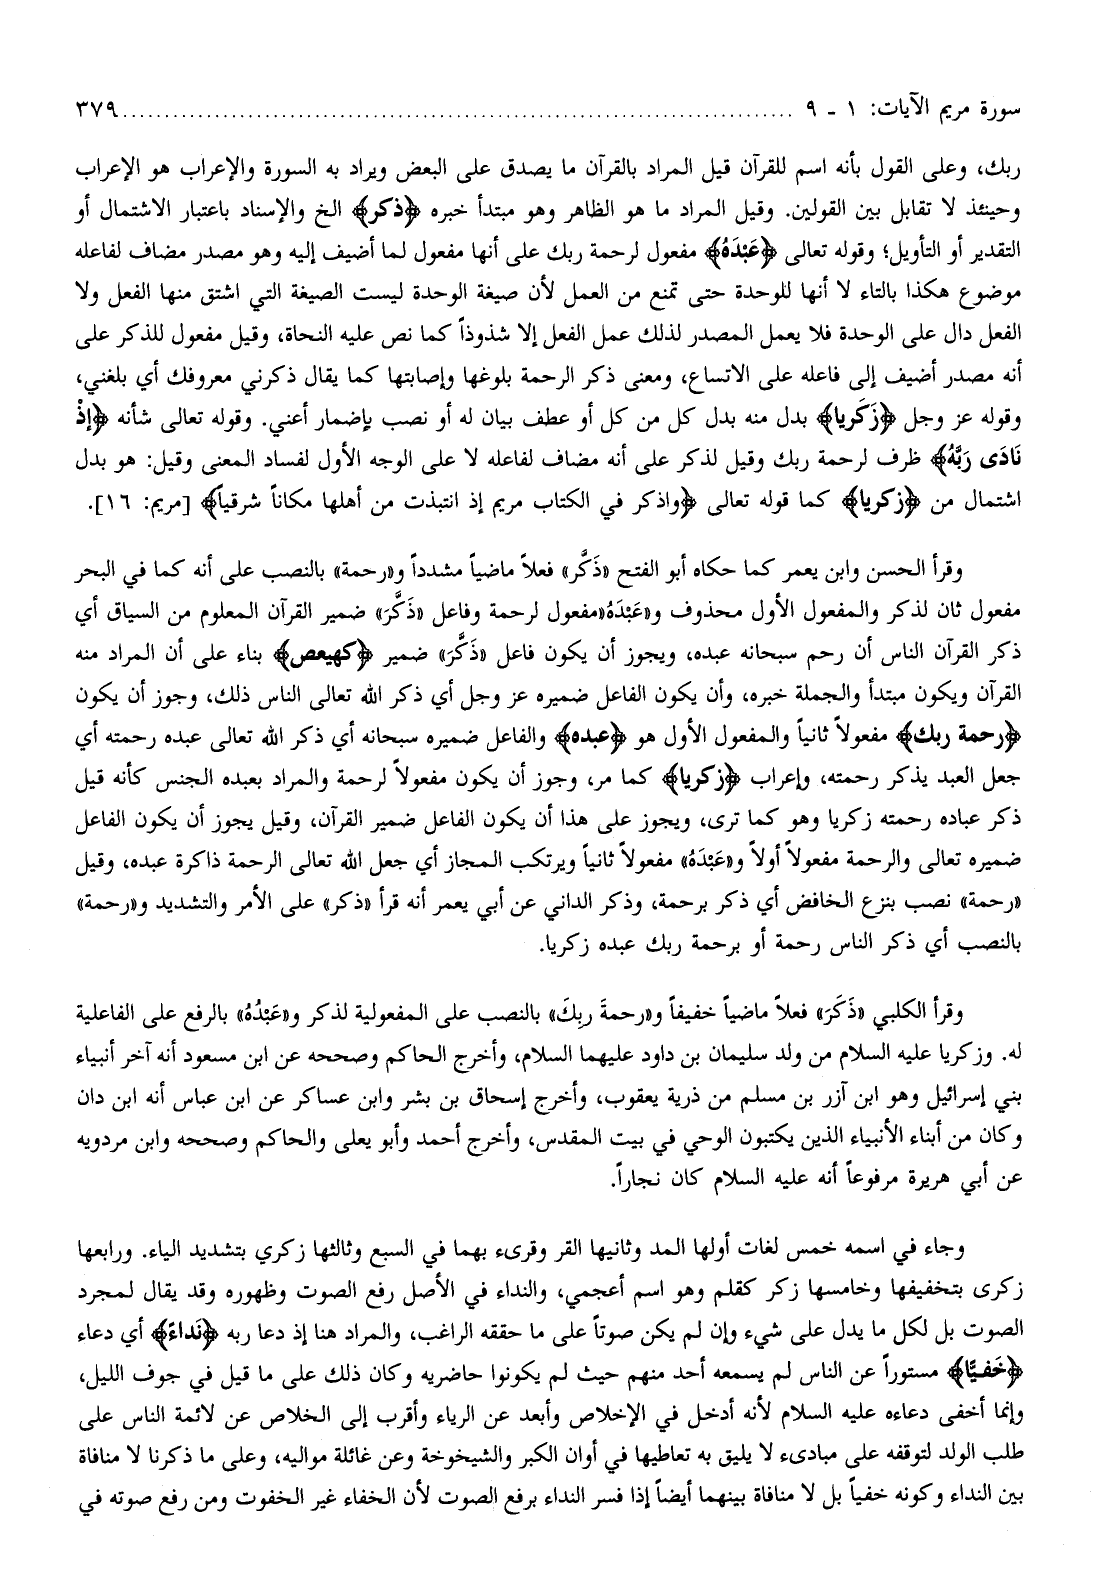 سورة مريم الآيات: ١ - ٩ ................................................................ ٣٧٩
ربك، وعلى القول بأنه اسم للقرآن قيل المراد بالقرآن ما يصدق على البعض ويراد به السورة والإعراب هو الإعراب
وحينئذ لا تقابل بين القولين. وقيل المراد ما هو الظاهر وهو مبتدأ خبره ﴿ذكر﴾ الخ والإسناد باعتبار الاشتمال أو
التقدير أو التأويل؛ وقوله تعالى ﴿عَبْدَهُ﴾ مفعول لرحمة ربك على أنها مفعول لما أضيف إليه وهو مصدر مضاف لفاعله
موضوع هكذا بالتاء لا أنها للوحدة حتى تمنع من العمل لأن صيغة الوحدة ليست الصيغة التي اشتق منها الفعل ولا
الفعل دال على الوحدة فلا يعمل المصدر لذلك عمل الفعل إلا شذوذاً كما نص عليه النحاة، وقيل مفعول للذكر على
أنه مصدر أضيف إلى فاعله على الاتساع، ومعنى ذكر الرحمة بلوغها وإصابتها كما يقال ذكرني معروفك أي بلغني،
وقوله عز وجل ﴿زَكَريا﴾ بدل منه بدل كل من كل أو عطف بيان له أو نصب بإضمار أعني. وقوله تعالى شأنه ﴿إذْ
نَادَى رَبَّهُ﴾ ظرف لرحمة ربك وقيل لذكر على أنه مضاف لفاعله لا على الوجه الأول لفساد المعنى وقيل: هو بدل
اشتمال من ﴿زكريا﴾ كما قوله تعالى ﴿واذكر في الكتاب مريم إذ انتبذت من أهلها مكاناً شرقياً﴾ [مريم: ١٦].
وقرأ الحسن وابن يعمر كما حكاه أبو الفتح «ذَكَّر» فعلاً ماضياً مشدداً و«رحمة» بالنصب على أنه كما في البحر
مفعول ثان لذكر والمفعول الأول محذوف و«عَبْدَهُ»مفعول لرحمة وفاعل «ذَكَّرَ» ضمير القرآن المعلوم من السياق أي
ذكر القرآن الناس أن رحم سبحانه عبده، ويجوز أن يكون فاعل «ذَكَّرَ» ضمير ﴿كهيعص﴾ بناء على أن المراد منه
القرآن ويكون مبتدأ والجملة خبره، وأن يكون الفاعل ضميره عز وجل أي ذكر الله تعالى الناس ذلك، وجوز أن يكون
﴿رحمة ربك﴾ مفعولاً ثانياً والمفعول الأول هو ﴿عبده﴾ والفاعل ضميره سبحانه أي ذكر الله تعالى عبده رحمته أي
جعل العبد يذكر رحمته، وإعراب ﴿زكريا﴾ كما مر، وجوز أن يكون مفعولاً لرحمة والمراد بعبده الجنس كأنه قيل
ذكر عباده رحمته زكريا وهو كما ترى، ويجوز على هذا أن يكون الفاعل ضمير القرآن، وقيل يجوز أن يكون الفاعل
ضميره تعالى والرحمة مفعولاً أولاً و«عَبْدَهُ» مفعولاً ثانياً ويرتكب المجاز أي جعل الله تعالى الرحمة ذاكرة عبده، وقيل
«رحمة» نصب بنزع الخافض أي ذكر برحمة، وذكر الداني عن أبي يعمر أنه قرأ «ذكر» على الأمر والتشديد و«رحمة»
بالنصب أي ذكر الناس رحمة أو برحمة ربك عبده زكريا.
وقرأ الكلبي «ذَكَرَ» فعلاً ماضياً خفيفاً و«رحمةَ ربِكَ» بالنصب على المفعولية لذكر و«عَبْدُهُ» بالرفع على الفاعلية
له. وزكريا عليه السلام من ولد سليمان بن داود عليهما السلام، وأخرج الحاكم وصححه عن ابن مسعود أنه آخر أنبياء
بني إسرائيل وهو ابن آزر بن مسلم من ذرية يعقوب، وأخرج إسحاق بن بشر وابن عساكر عن ابن عباس أنه ابن دان
وكان من أبناء الأنبياء الذين يكتبون الوحي في بيت المقدس، وأخرج أحمد وأبو يعلى والحاكم وصححه وابن مردويه
عن أبي هريرة مرفوعاً أنه عليه السلام كان نجاراً.
وجاء في اسمه خمس لغات أولها المد وثانيها القر وقرىء بهما في السبع وثالثها زكري بتشديد الياء. ورابعها
زكرى بتخفيفها وخامسها زكر كقلم وهو اسم أعجمي، والنداء في الأصل رفع الصوت وظهوره وقد يقال لمجرد
الصوت بل لكل ما يدل على شيء وإن لم يكن صوتاً على ما حققه الراغب، والمراد هنا إذ دعا ربه ﴿نَداءً﴾ أي دعاء
﴿خَفيًّا﴾ مستوراً عن الناس لم يسمعه أحد منهم حيث لم يكونوا حاضريه وكان ذلك على ما قيل في جوف الليل،
وإنما أخفى دعاءه عليه السلام لأنه أدخل في الإخلاص وأبعد عن الرياء وأقرب إلى الخلاص عن لائمة الناس على
طلب الولد لتوقفه على مبادىء لا يليق به تعاطيها في أوان الكبر والشيخوخة وعن غائلة مواليه، وعلى ما ذكرنا لا منافاة
بين النداء وكونه خفياً بل لا منافاة بينهما أيضاً إذا فسر النداء برفع الصوت لأن الخفاء غير الخفوت ومن رفع صوته في